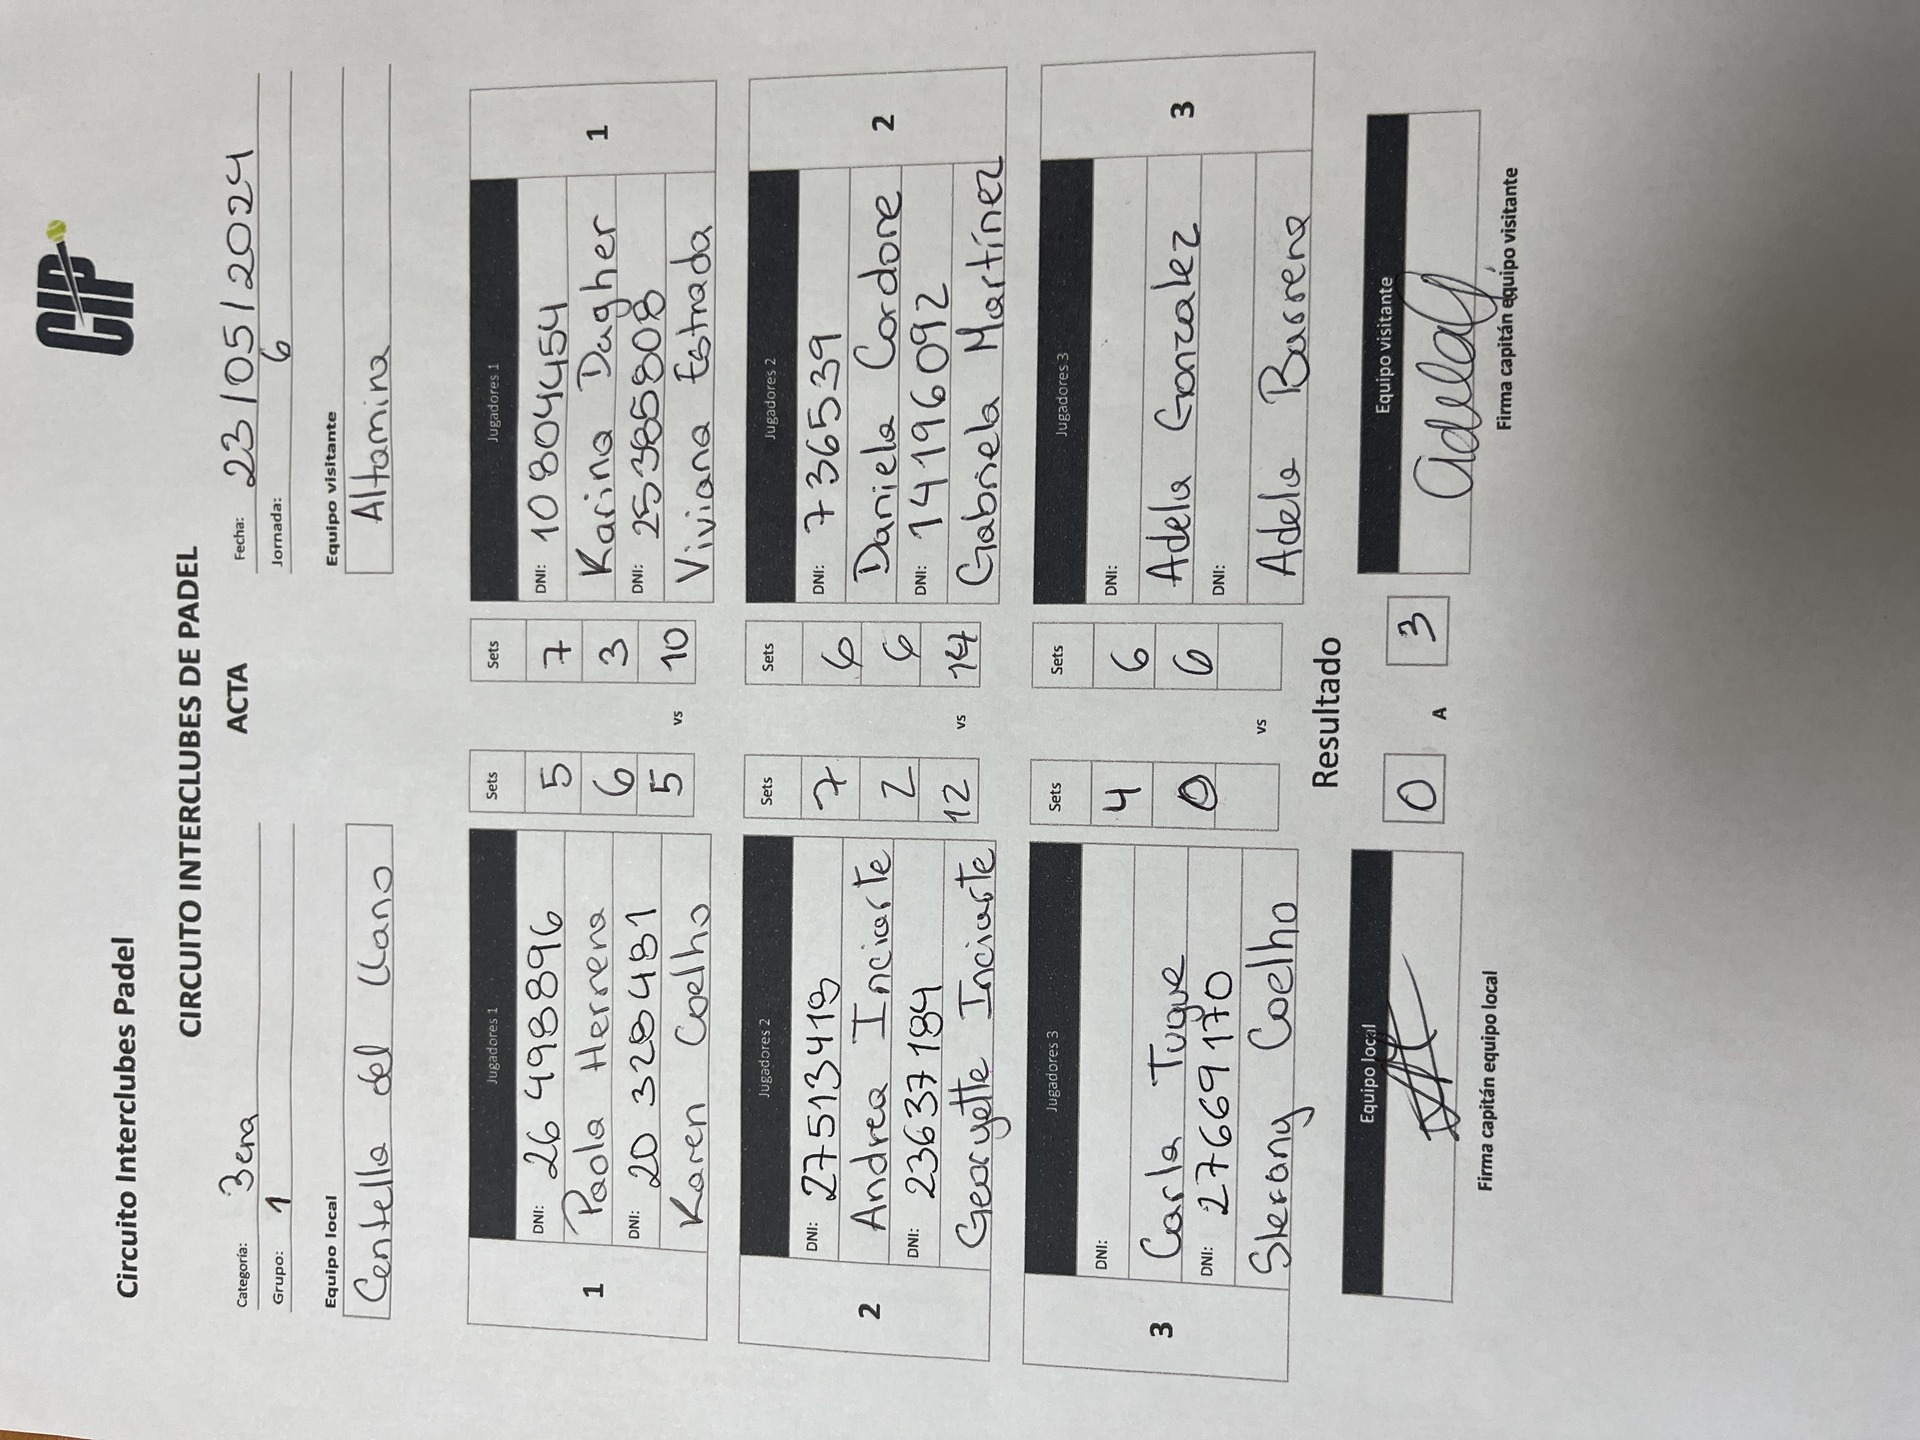 CIP
Circuito Interclubes Padel
CIRCUITO INTERCLUBES DE PADEL
ACTA
Categoría: 3era
Fecha: 23/05/2024
Grupo: 1
Jornada: 6
Equipo local
Equipo visitante
Centella del Llano
Altamira
Jugadores 1
Sets
Sets
Jugadores 1
1
DNI: 26498896
5
7
DNI: 10804454
1
Paola Herrera
6
3
Karina Dagher
DNI: 20328481
5
vs
10
DNI: 25385808
Karen Coelho
Viviana Estrada
Jugadores 2
Sets
Sets
Jugadores 2
2
DNI: 27513418
7
6
DNI: 7365539
2
Andrea Inciarte
2
6
Daniela Cordone
DNI: 23637184
12
vs
14
DNI: 14196092
Georgette Inciarte
Gabriela Martínez
Jugadores 3
Sets
Sets
Jugadores 3
3
DNI:
4
6
DNI:
3
Carla Tugue
0
6
Adela Gonzalez
DNI: 27669170
vs
DNI:
Coelho
Adela Barrera
Resultado
Equipo local
0
A
3
Equipo visitante
Firma capitán equipo local
Firma capitán equipo visitante